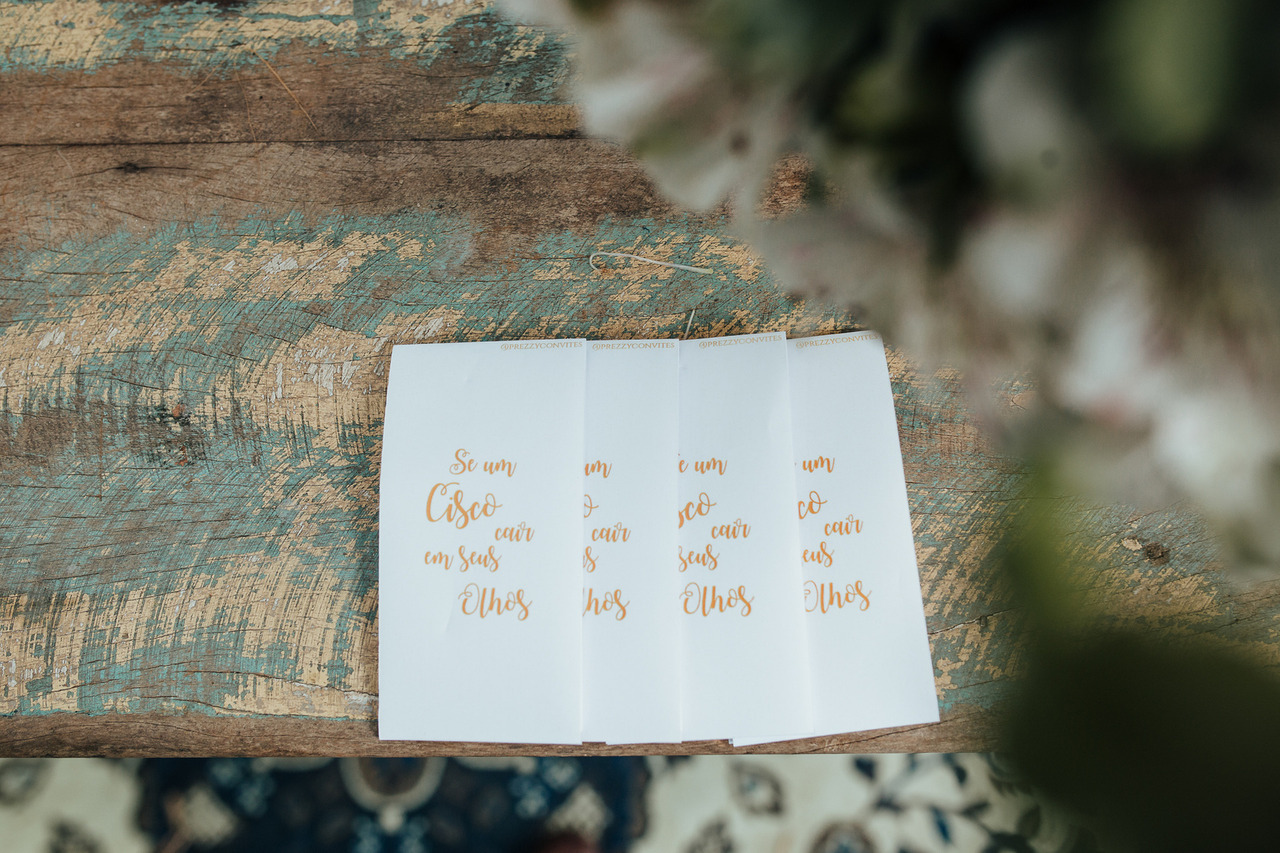 @PREZZYCONVITES
Se um
Cisco
cair
em seus
Olhos
@PREZZYCONVITES
um
o
cair
s
lhos
@PREZZYCONVITES
e um
sco
cair
seus
Olhos
@PREZZYCONVITES
um
co
cair
eus
Olhos